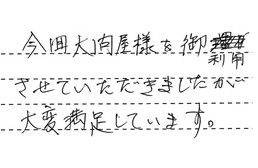 今回大内屋様を御利用
させていただきましたが
大変満足しています。